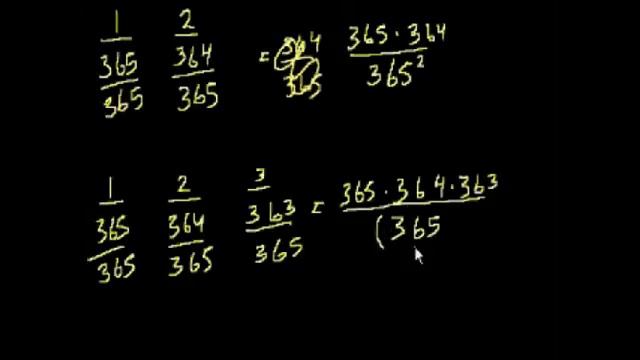 1 2
365/365 364/365 = 365 · 364 / 365²
1 2 3
365/365 364/365 363/365 = 365 · 364 · 363 / (365